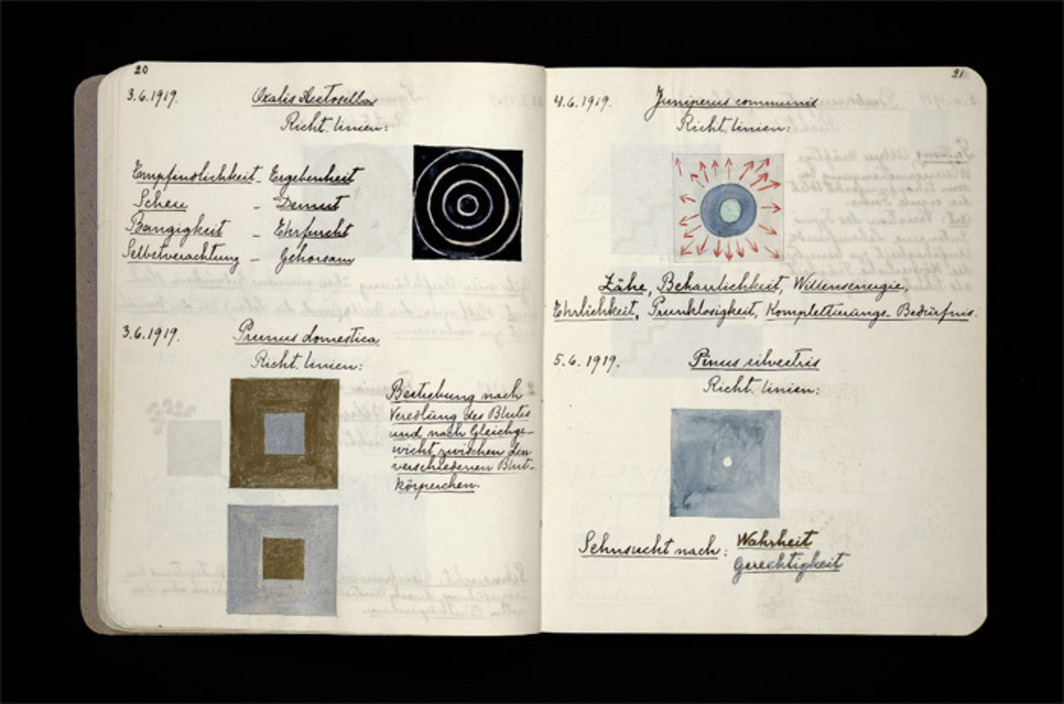 20
3.6.1919.
Oxalis Acetosella
Richt.linien:
Empfindlichkeit - Ergebenheit
Scheu - Demut
Bangigkeit - Ehrfurcht
Selbstverachtung - Gehorsam
3.6.1919.
Prunus domestica
Richt.linien:
Bestrebung nach
Veredlung des Blutes
und nach Gleichge-
wicht zwischen den
verschiedenen Blut-
körperchen.
21.
4.6.1919.
Juniperus communis
Richt.linien:
Zähe, Beharrlichkeit, Willensenergie,
Ehrlichkeit, Prunklosigkeit, Komplettierungs-Bedürfnis.
5.6.1919.
Pinus silvestris
Richt.linien:
Sehnsucht nach: Wahrheit
Gerechtigkeit